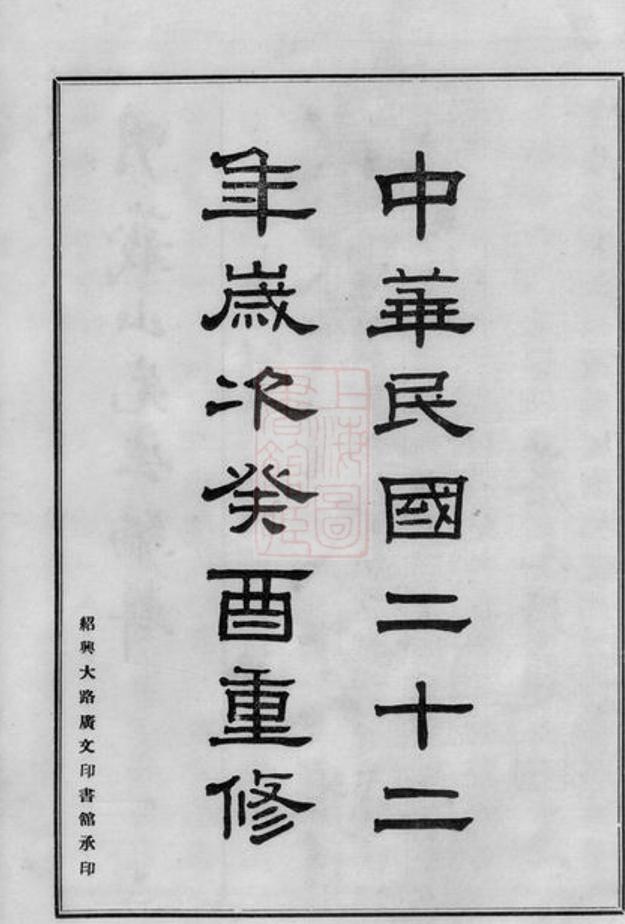 中華民國二十二
年歲次癸酉重修
紹興大路廣文印書館承印
上海圖
書館藏